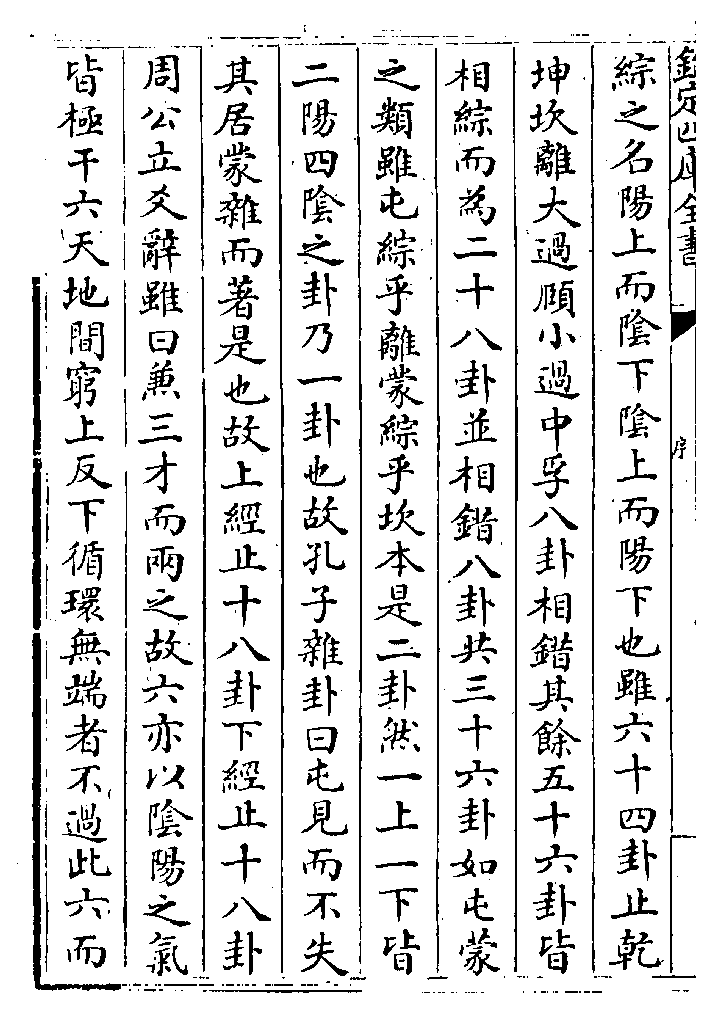 欽定四庫全書
序
綜之名陽上而陰下陰上而陽下也雖六十四卦止乾
坤坎離大過頤小過中孚八卦相錯其餘五十六卦皆
相綜而為二十八卦並相錯八卦共三十六卦如屯蒙
之類雖屯綜乎離蒙綜乎坎本是二卦然一上一下皆
二陽四陰之卦乃一卦也故孔子雜卦曰屯見而不失
其居蒙雜而著是也故上經止十八卦下經止十八卦
周公立爻辭雖曰兼三才而兩之故六亦以陰陽之氣
皆極于六天地間窮上反下循環無端者不過此六而